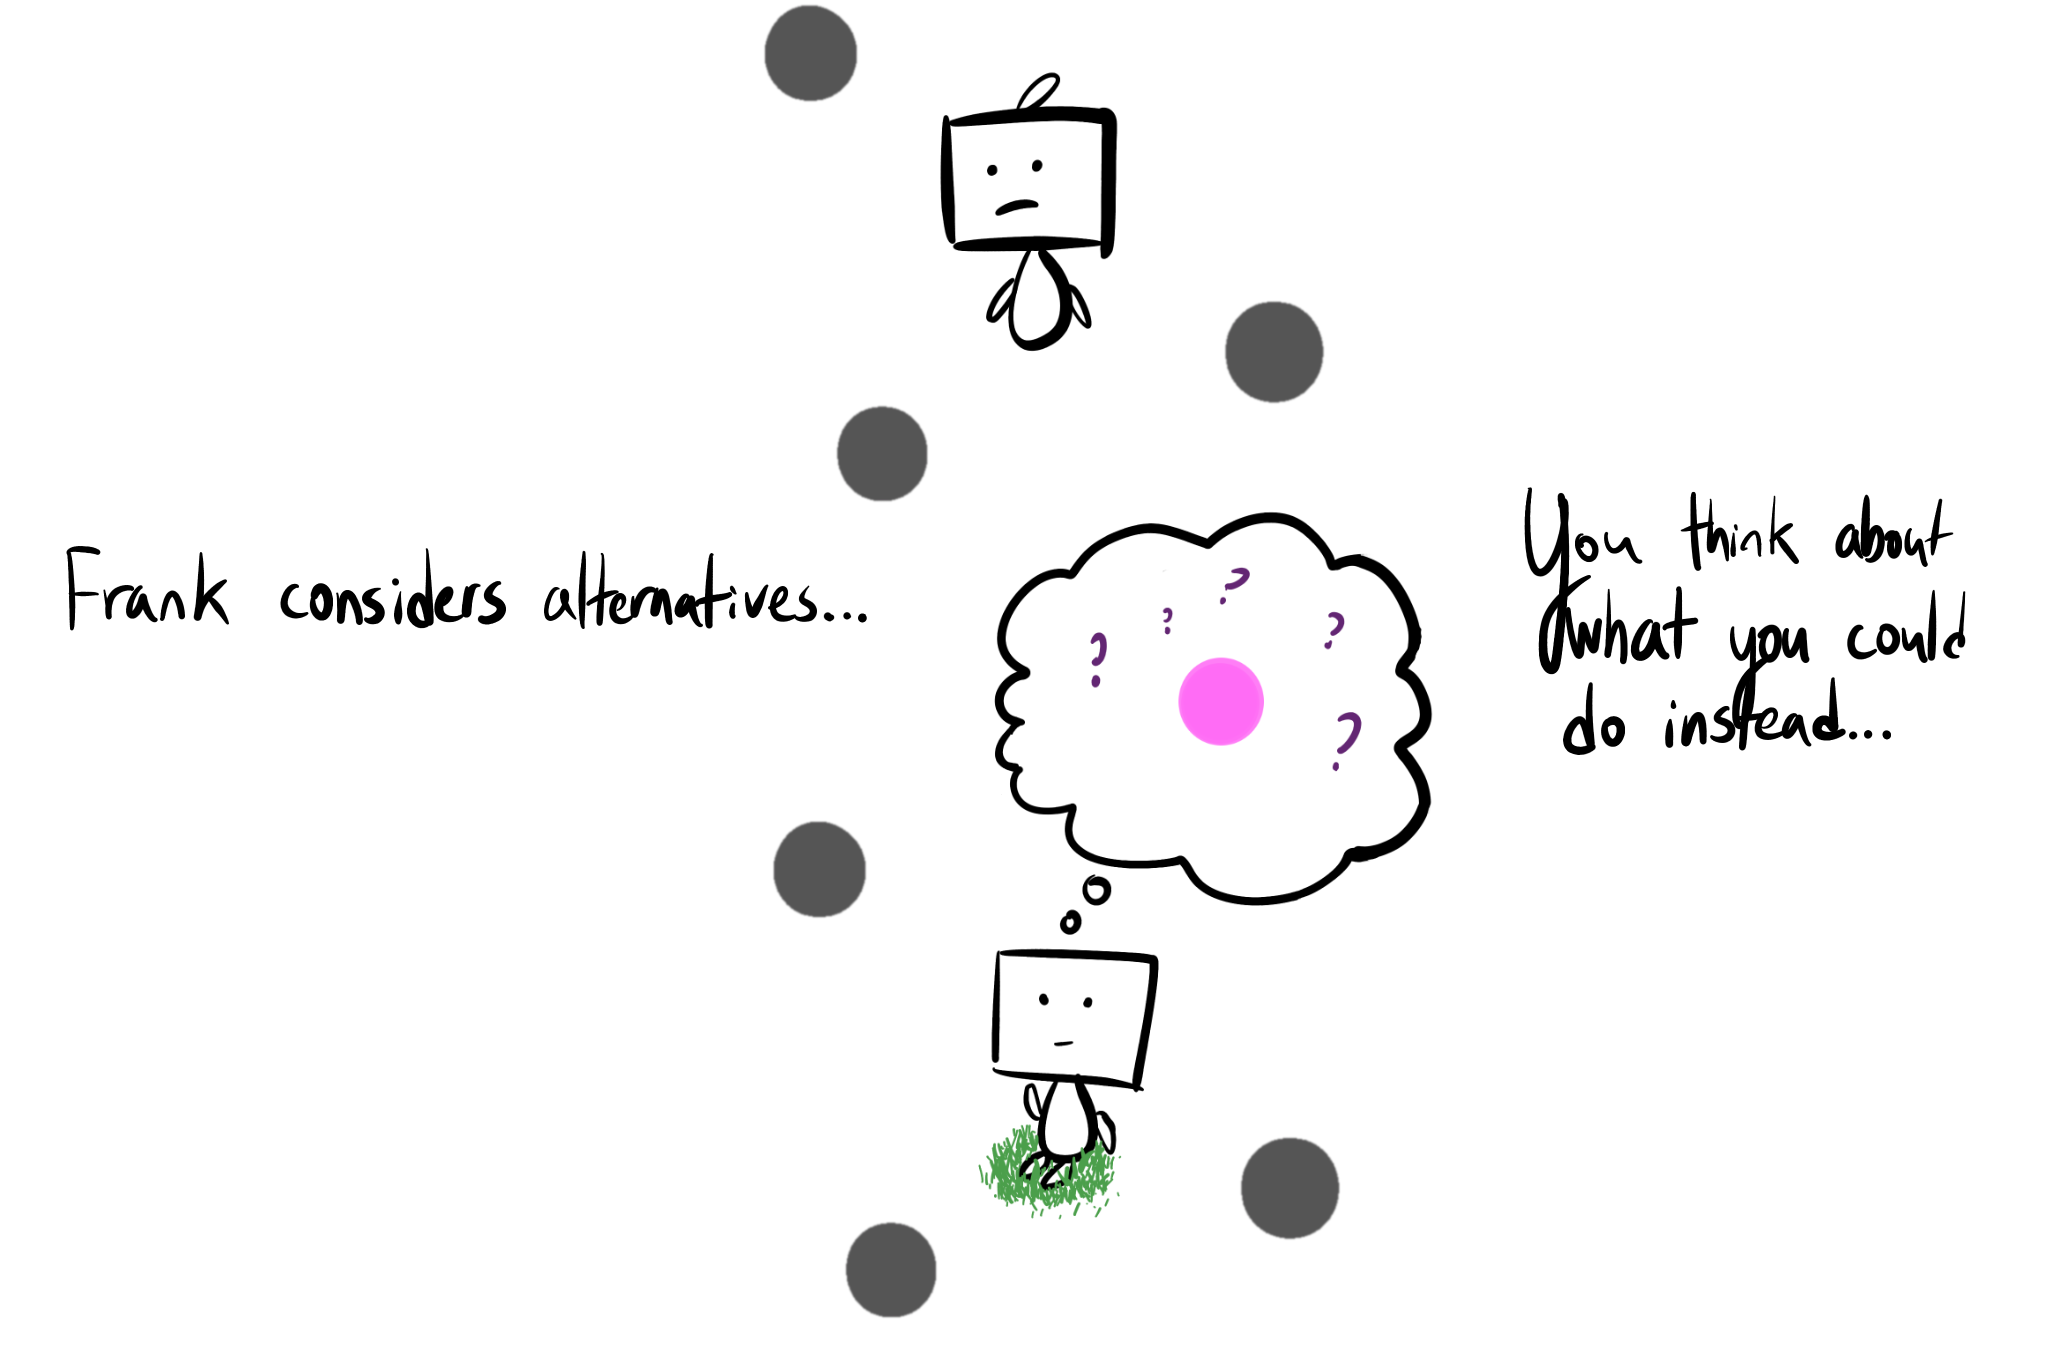 Frank considers alternatives...
You think about
what you could
do instead...
? ? ? ? ?